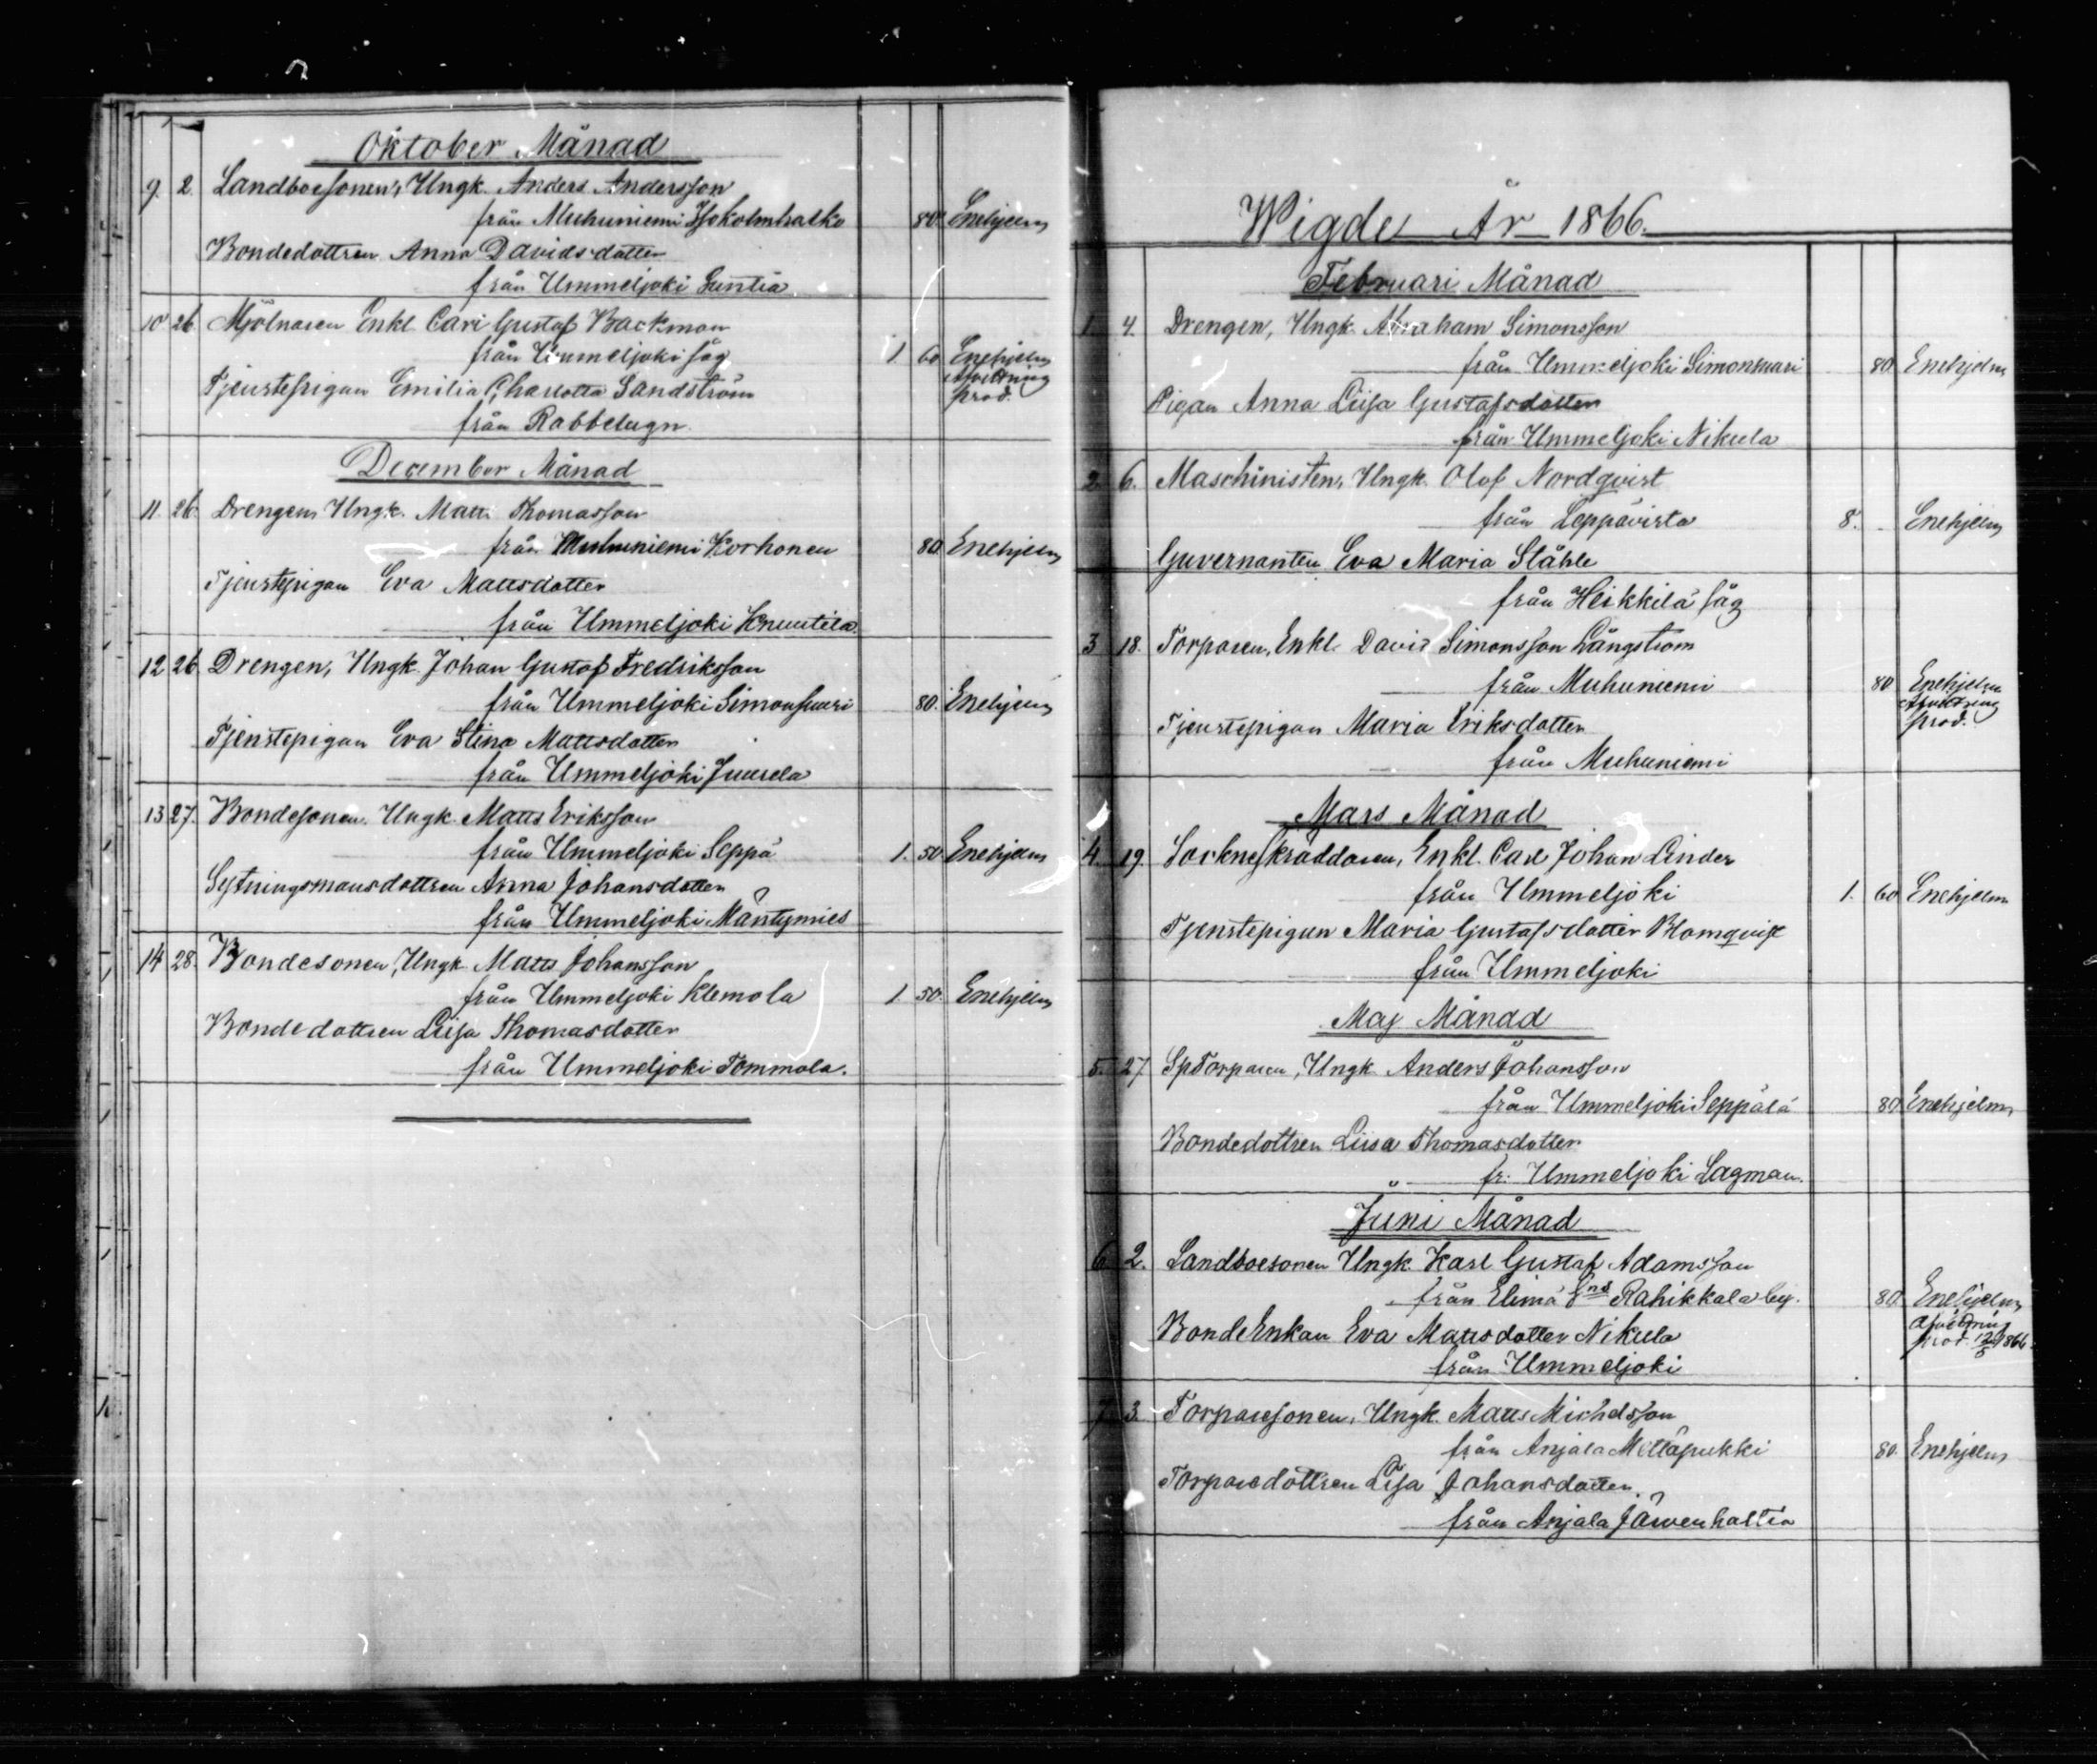 Oktober Månad
9. 2. Landboesonen, Ungk. Anders Andersson
från Muhuniemi 80 Enehjelm
Bondedottren Anna Davidsdotter
från Ummeljoki Suntia
10 26 Mjölnaren Enkl. Carl Gustaf Backman
från Ummeljoki såg 1. 60 Enehjelm
Tjenstepigan Emilia Charlotta Sandström Afvittring prod.
från Rabbelugn.
December Månad
11. 26. Drengen, Ungk. Matts Thomasson
från Muhuniemi Korhonen 80 Enehjelm
Tjenstepigan Eva Mattsdotter
från Ummeljoki Knuutila.
12 26 Drengen, Ungk. Johan Gustaf Fredriksson
från Ummeljoki Simonsuuri 80. Enehjelm
Tjenstepigan Eva Stina Mattsdotter
från Ummeljoki Juurela
13 27. Bondesonen, Ungk. Matts Eriksson
från Ummeljoki Seppä 1. 50. Enehjelm
Sytningsmansdottren Anna Johansdotter
från Ummeljoki Mäntymies
14 28. Bondesonen, Ungk. Matts Johansson
från Ummeljoki Klemola 1. 50. Enehjelm
Bondedottren Liisa Thomasdotter
från Ummeljoki Tommola.
Wigde År 1866.
Februari Månad
1. 4. Drengen, Ungk. Abraham Simonsson
från Ummeljoki Simonsuuri 80. Enehjelm
Pigan Anna Liisa Gustafsdotter
från Ummeljoki Nikula
2. 6. Maschinisten, Ungk. Olof Nordqvist
från Leppävirta 8. - Enehjelm
Guvernanten Eva Maria Ståhle
från Heikkilä såg
3 18. Torparen, Enkl. David Simonsson Långström
från Muhuniemi 80 Enehjelm
Afvittring
prod.
Tjenstepigan Maria Eriksdotter
från Muhuniemi
Mars Månad
4. 19. Sockneskräddaren, Enkl. Carl Johan Linder
från Ummeljoki 1. 60 Enehjelm
Tjenstepigan Maria Gustafsdotter Blomqvist
från Ummeljoki
Maj Månad
5. 27 SpTorparen, Ungk. Anders Johansson
från Ummeljoki Seppälä 80 Enehjelm
Bondedottren Liisa Thomasdotter
" fr. Ummeljoki Lagman.
Juni Månad
6. 2. Landboesonen Ungk. Karl Gustaf Adamsson
från Elimä Snd Rahikkala by. 80. Enehjelm
Bonde Enkan Eva Mattsdotter Nikula Afvittring
prod. 1866.
från Ummeljoki
7. 3. Torparesonen, Ungk. Matts Michelsson
från Anjala Mettäpukki 80. Enehjelm
Torparedottren Lisa Johansdotter
från Anjala Järvenhaltia